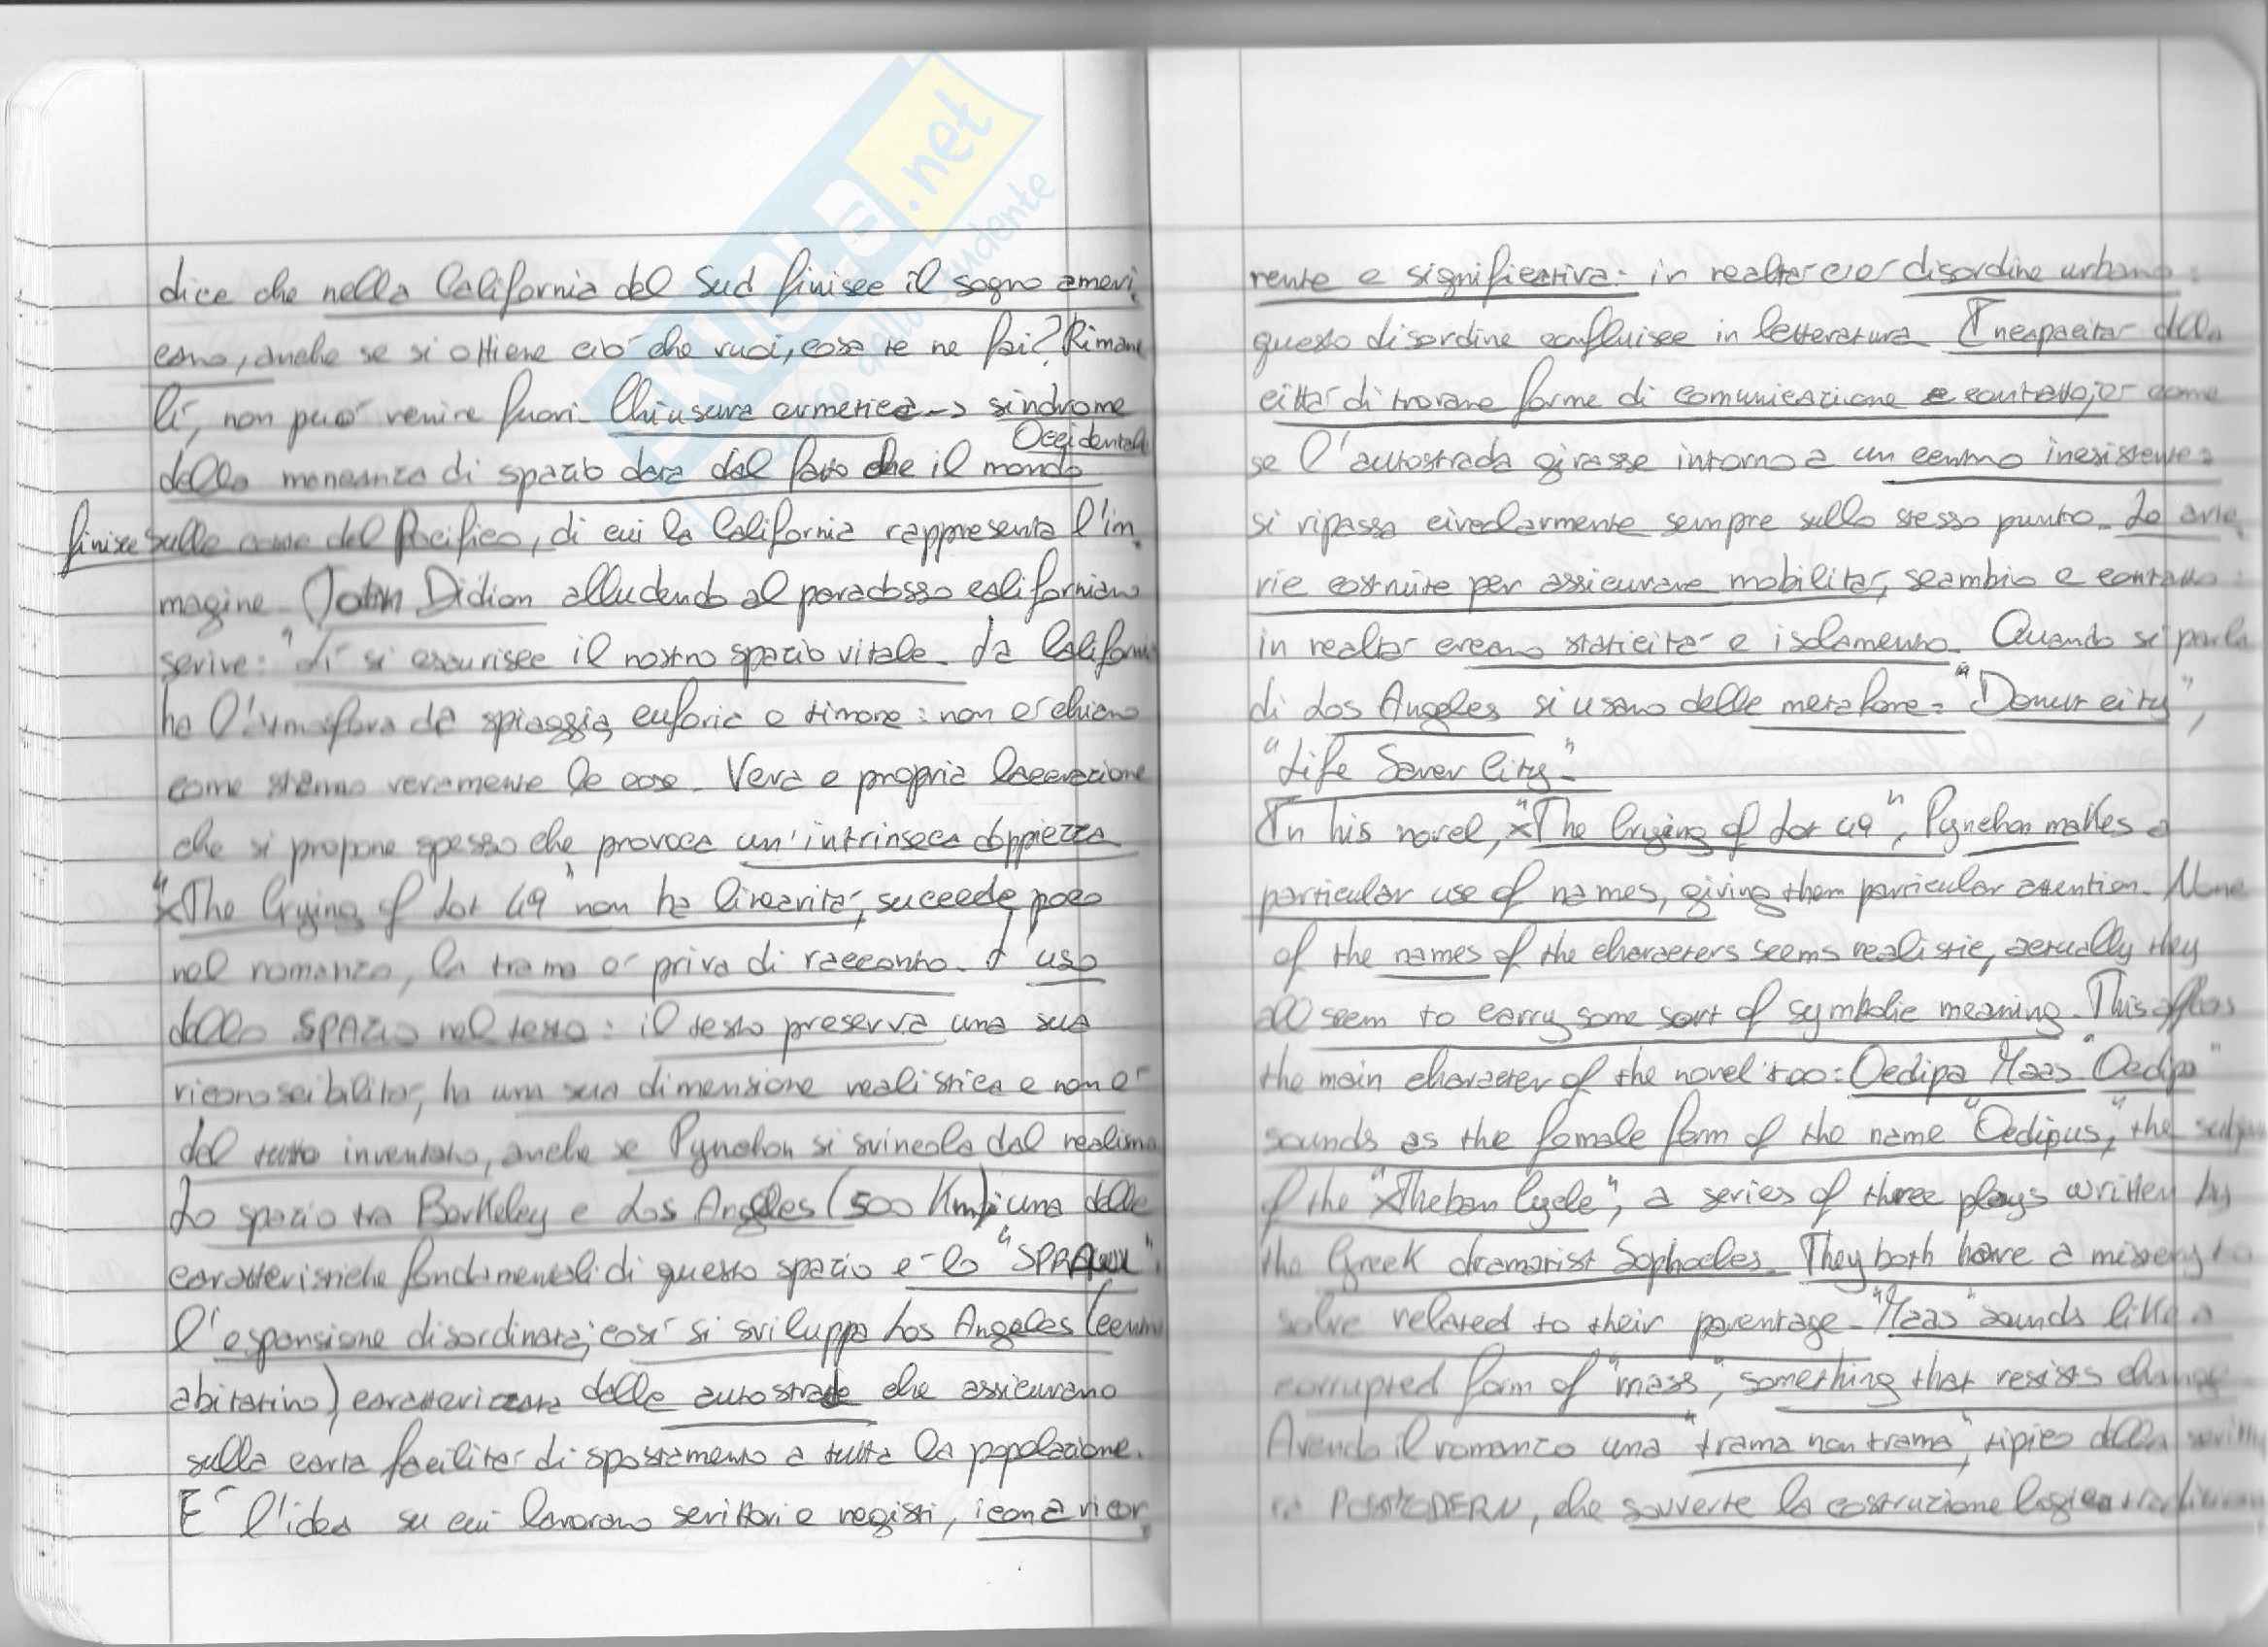 dice che nella California del Sud finisce il sogno ameri
cano, anche se si ottiene ciò che vuoi, cosa te ne fai? Rimane
lì, non può venire fuori. Chiusura ermetica -> sindrome
della mancanza di spazio data dal fatto che il mondo Occidentale
finisce sulle coste del Pacifico, di cui la California rappresenta l'im
magine. Joan Didion alludendo al paradosso californiano
scrive: "lì si esaurisce il nostro spazio vitale. La California
ha l'atmosfera da spiaggia, euforia e timore: non è chiaro
come stanno veramente le cose. Vera e propria lacerazione
che si propone spesso che provoca un'intrinseca doppiezza
"The Crying of Lot 49" non ha linearità, succede poco
nel romanzo, la trama è priva di racconto. L'uso
dello SPAZIO nel testo: il testo preserva una sua
riconoscibilità, ha una sua dimensione realistica e non è
del tutto inventato, anche se Pynchon si svincola dal realismo
Lo spazio tra Berkeley e Los Angeles (500 Km): una delle
caratteristiche fondamentali di questo spazio è lo "SPRAWL":
l'espansione disordinata; così si sviluppa Los Angeles (centro
abitativo) caratterizzata dalle autostrade che assicurano
sulla carta facilità di spostamento a tutta la popolazione.
E' l'idea su cui lavorano scrittori e registi, icona ricor
rente e significativa: in realtà c'è disordine urbano:
questo disordine confluisce in letteratura. Incapacità della
città di trovare forme di comunicazione e contatto; è come
se l'autostrada girasse intorno a un centro inesistente:
si ripassa circolarmente sempre sullo stesso punto. Le arte
rie costruite per assicurare mobilità, scambio e contatto:
in realtà creano staticità e isolamento. Quando si parla
di Los Angeles si usano delle metafore: "Donut city",
"Life Saver City".
In his novel, "The Crying of Lot 49", Pynchon makes a
particular use of names, giving them particular attention. None
of the names of the characters seems realistic, actually they
all seem to carry some sort of symbolic meaning. This affects
the main character of the novel too: Oedipa Maas. "Oedipa"
sounds as the female form of the name "Oedipus," the
of the "Theban Cycle", a series of three plays written by
the Greek dramatist Sophocles. They both have a mistery to
solve related to their parentage. "Maas" sounds like a
corrupted form of "mass", something that resists change
Avendo il romanzo una "trama non trama", tipico della
POSTMODERN, che sovverte la costruzione logica